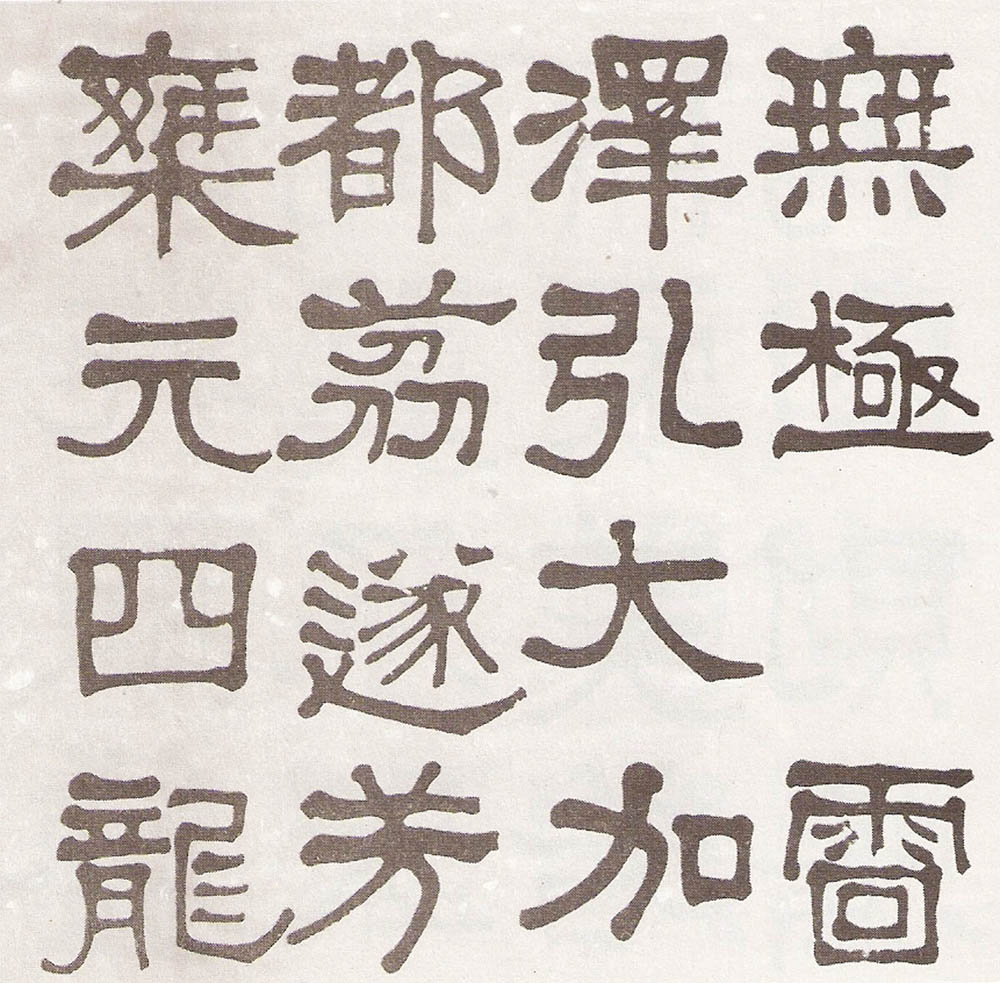 無極 雷
澤弘大加
都荔遂芳
乘元四龍